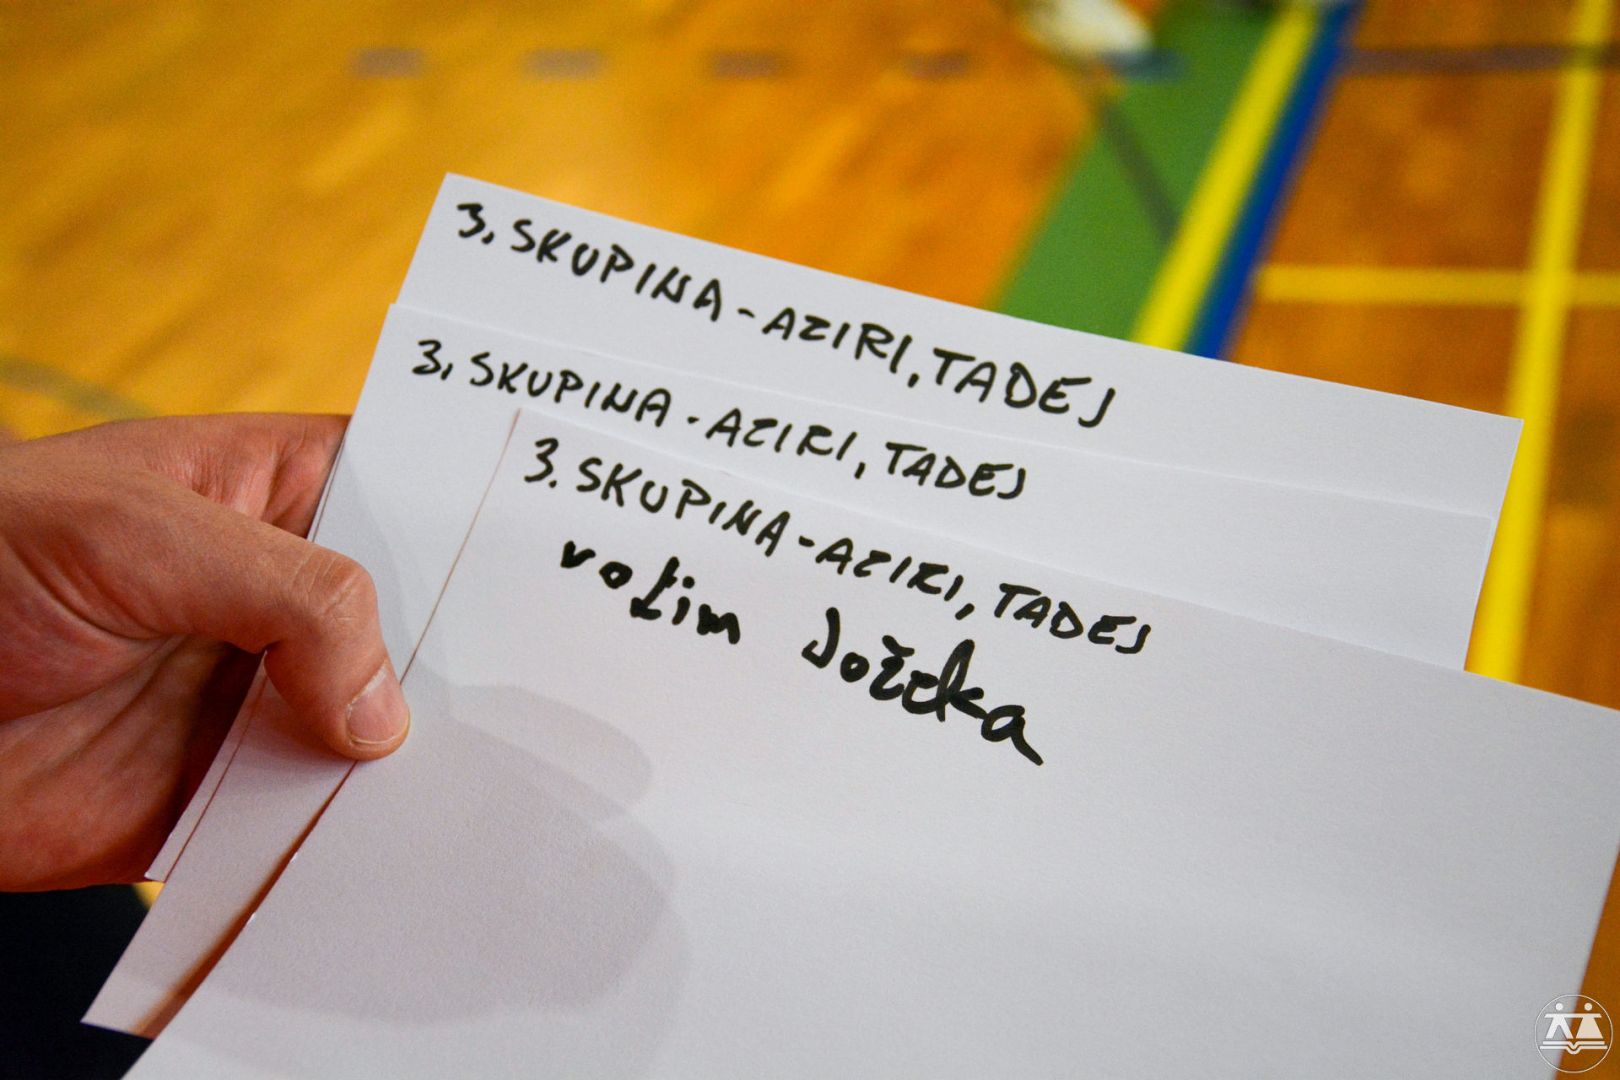 3. SKUPINA - AZIRI, TADEJ
3. SKUPINA - AZIRI, TADEJ
3. SKUPINA - AZIRI, TADEJ
volim Jožeka